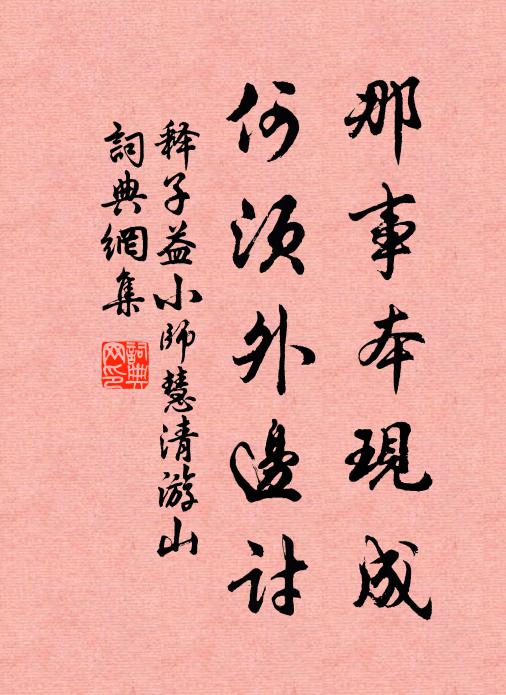 那事本現成
何須外邊討
释子益小师慧清游山
詞典網集
詞典
网印